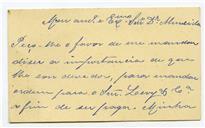 Meu am.º e Exmo Snr Dr. Almeida
Peço-lhe o favor de me mandar
dizer a importancia de que
lhe sou devedor, para mandar
ordem para o Snr. Levy & Cª
a fim de ser pago. Minha